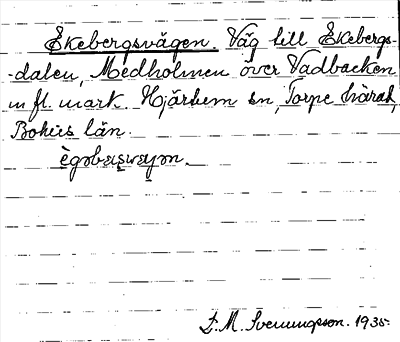 Ekebergsvägen. Väg till Ekebergs-
-dalen, Medholmen över Vadbacken
m fl. mark. Hjärtum sn, Torpe härad,
Bohus län.
F. M. Svenungsson. 1935.